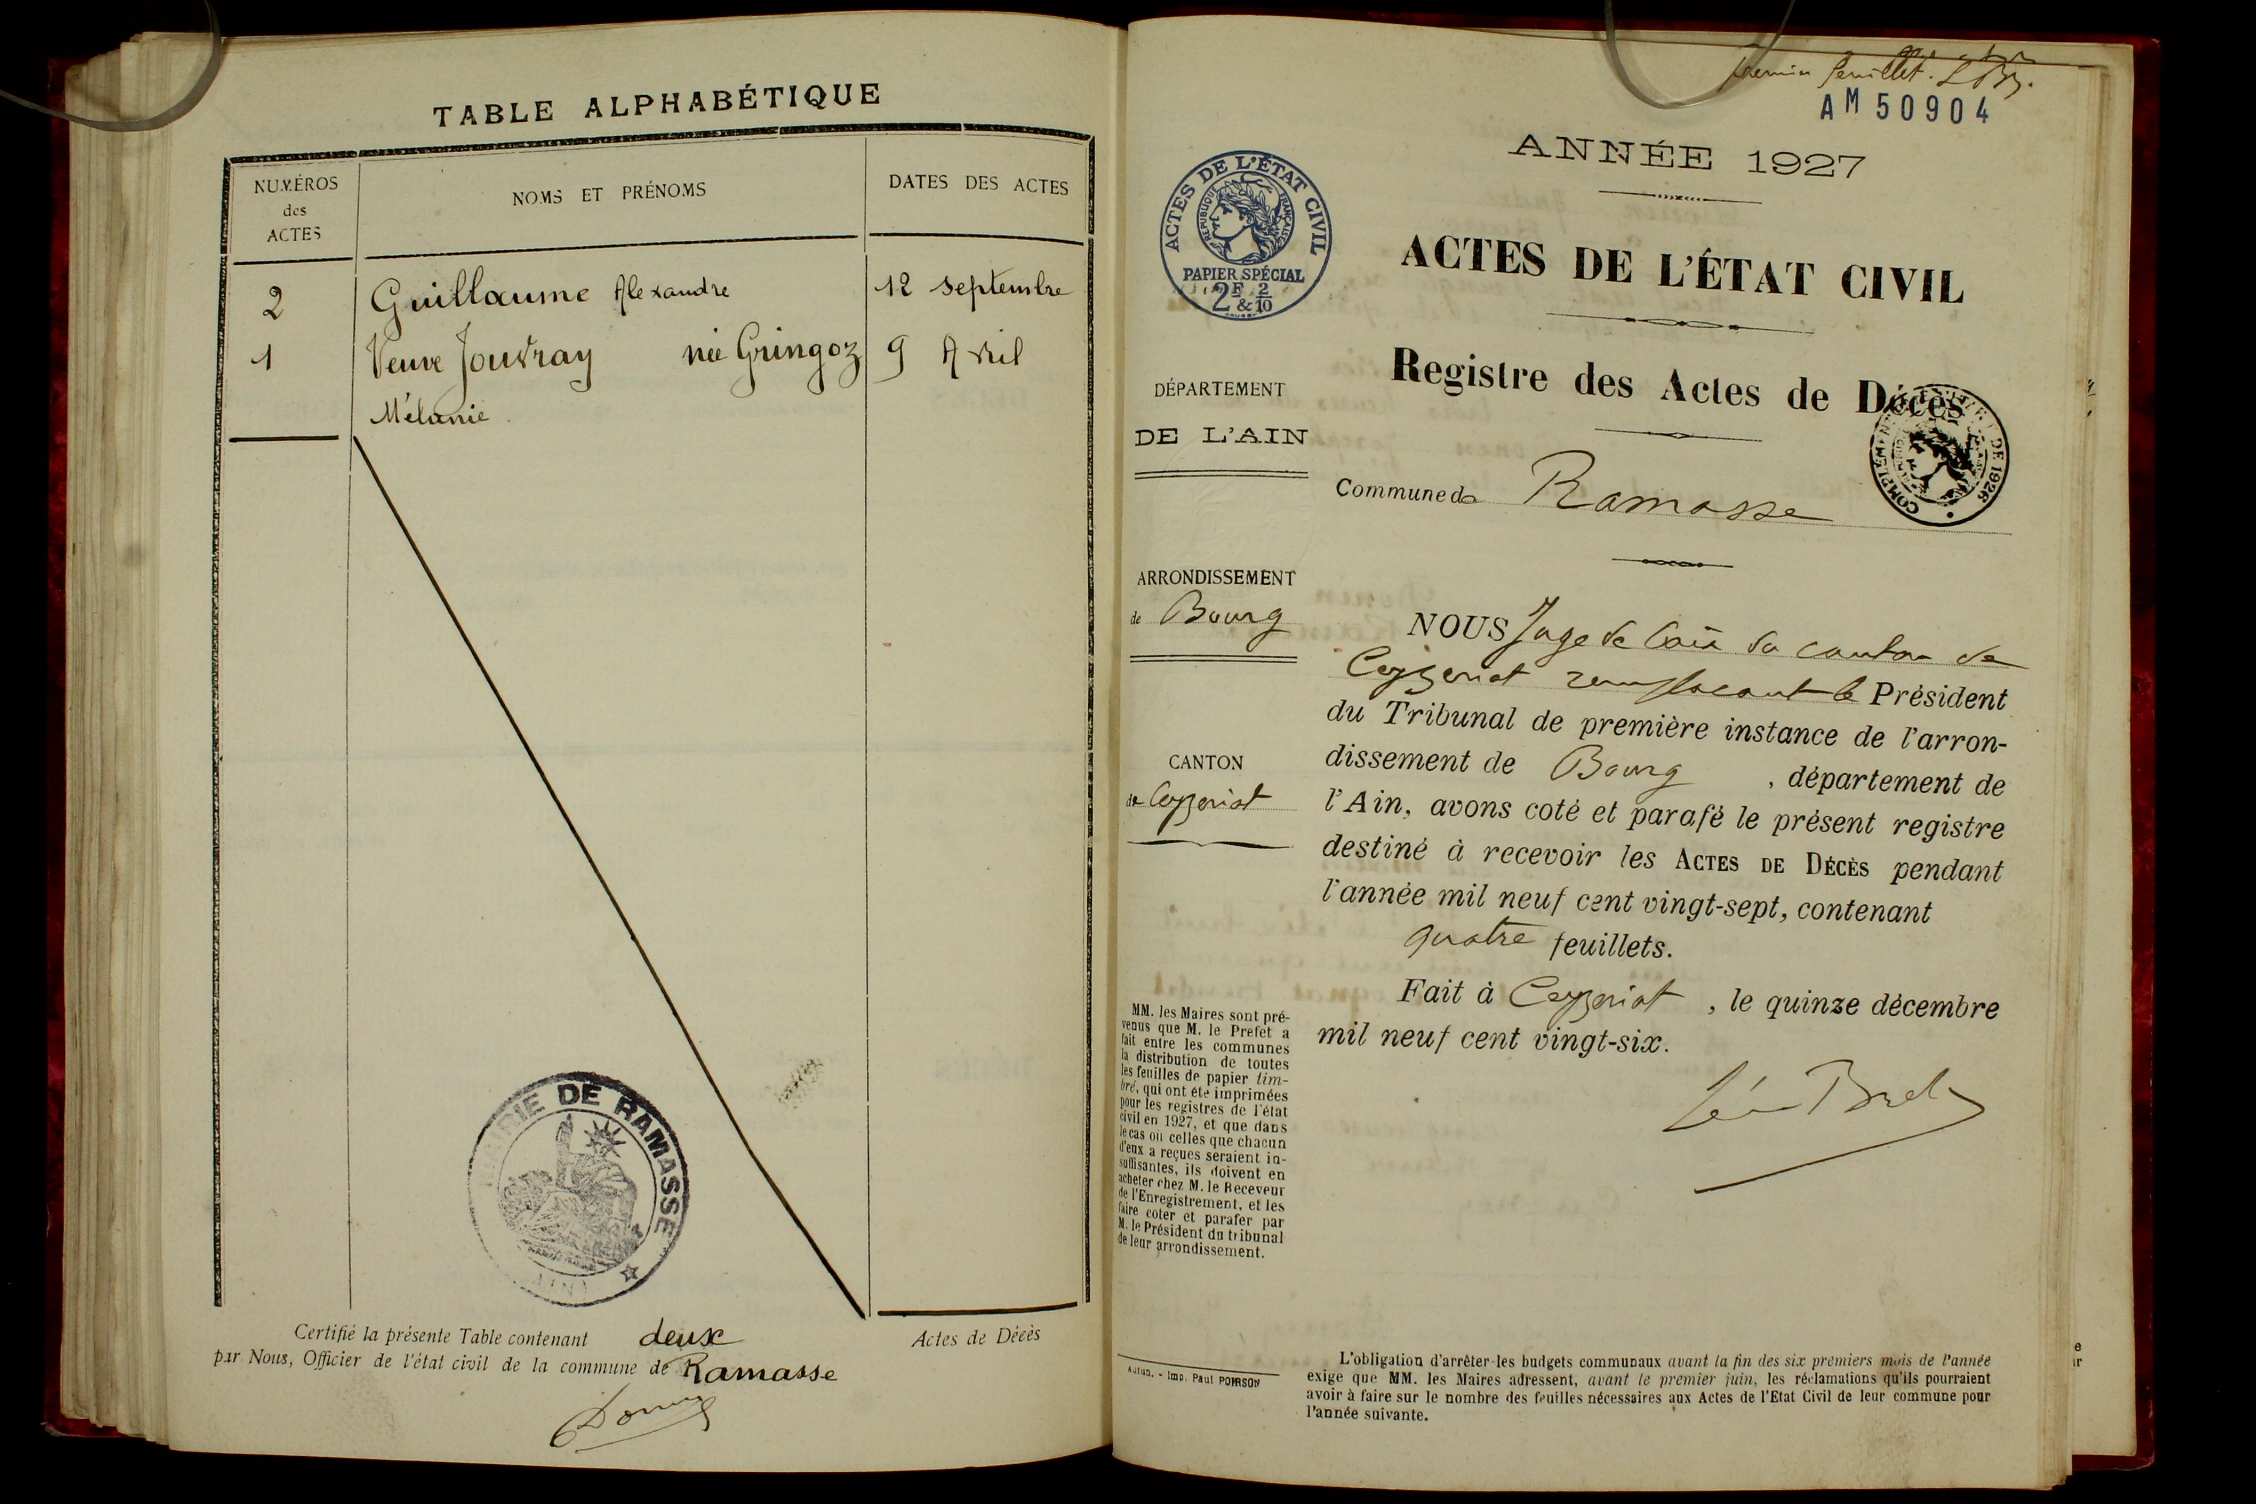 TABLE ALPHABÉTIQUE
NUMÉROS
des
ACTES
NOMS ET PRÉNOMS
DATES DES ACTES
2 Guillaume Alexandre 12 septembre
1 Veuve Jouvray née Gringoz 9 Avril
Mélanie
MAIRIE DE RAMASSE
(AIN)
Certifié la présente Table contenant deux Actes de Décès
par Nous, Officier de l'état civil de la commune de Ramasse
Premier feuillet.
AM 50904
ANNÉE 1927
ACTES DE L'ÉTAT CIVIL
RÉPUBLIQUE FRANÇAISE
PAPIER SPÉCIAL
2F & 2/10
ACTES DE L'ÉTAT CIVIL
Registre des Actes de Décès
DE 1926
DÉPARTEMENT
DE L'AIN
Commune de Ramasse
ARRONDISSEMENT
de Bourg
CANTON
de Ceyzeriat
NOUS Juge de Paix du canton de
Ceyzeriat remplacant le Président
du Tribunal de première instance de l'arron-
dissement de Bourg, département de
l'Ain, avons coté et parafé le présent registre
destiné à recevoir les ACTES DE DÉCÈS pendant
l'année mil neuf cent vingt-sept, contenant
quatre feuillets.
Fait à Ceyzeriat, le quinze décembre
mil neuf cent vingt-six.
MM. les Maires sont pré-
venus que M. le Prefet a
fait entre les communes
la distribution de toutes
les feuilles de papier tim-
bré, qui ont été imprimées
pour les registres de l'état
civil en 1927, et que dans
le cas où celles que chacun
d'eux a reçues seraient in-
suffisantes, ils doivent en
acheter chez M. le Receveur
de l'Enregistrement, et les
faire coter et parafer par
M. le Président du tribunal
de leur arrondissement.
Autun. - Imp. Paul POIRSON
L'obligation d'arrêter les budgets communaux avant la fin des six premiers mois de l'année
exige que MM. les Maires adressent, avant le premier juin, les réclamations qu'ils pourraient
avoir à faire sur le nombre des feuilles nécessaires aux Actes de l'Etat Civil de leur commune pour
l'année suivante.